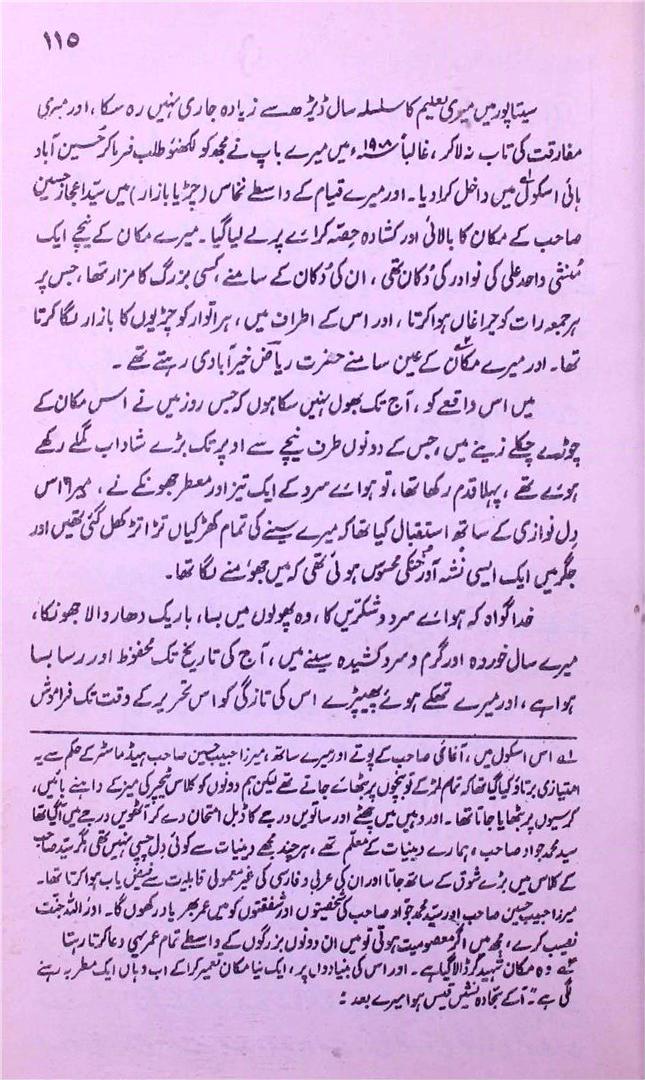 ۱۱۵
سیتاپور میں میری تعلیم کا سلسلہ سال ڈیڑھ سے زیادہ جاری نہیں رہ سکا، اور میری
مفارقت کی تاب نہ لا کر، غالباً ۱۹۰۸ء میں میرے باپ نے مجھ کو لکھنؤ طلب فرما کر حسین آباد
ہائی اسکول ۱؎ میں داخل کرا دیا۔ اور میرے قیام کے واسطے نخاس (چڑیا بازار) میں سیّد اعجاز حسین
صاحب کے مکان کا بالائی اور کشادہ حصّہ کرائے پر لے لیا گیا۔ میرے مکان کے نیچے ایک
مُنشی واحد علی کی نوادر کی دُکان تھی، ان کی دُکان کے سامنے، کسی بزرگ کا مزار تھا، جس پر
ہر جمعرات کو چراغاں ہوا کرتا، اور اس کے اطراف میں، ہر اتوار کو چڑیوں کا بازار لگا کرتا
تھا۔ اور میرے مکان ۲؎ کے عین سامنے حضرت ریاضؔ خیرآبادی رہتے تھے۔
میں اس واقعے کو، آج تک بھول نہیں سکا ہوں کہ جس روز میں نے اس مکان کے
چوڑے چکلے زینے میں، جس کے دونوں طرف نیچے سے اوپر تک بڑے شاداب گملے رکھے
ہوئے تھے، پہلا قدم رکھا تھا، تو ہوائے سرد کے ایک تیز اور معطر جھونکے نے، میرا اس
دِل نوازی کے ساتھ استقبال کیا تھا کہ میرے سینے کی تمام کھڑکیاں تڑاتڑ کھل گئی تھیں اور
جگر میں ایک ایسی نشہ آور خنکی محسوس ہوئی تھی کہ میں جھومنے لگا تھا۔
خدا گواہ کہ ہوائے سرد و شکّریں کا، وہ پھولوں میں بسا، باریک دھار والا جھونکا،
میرے سال خوردہ اور گرم و سرد کشیدہ سینے میں، آج کی تاریخ تک محفوظ اور رسا بسا
ہوا ہے، اور میرے تھکے ہوئے پھیپڑے اس کی تازگی کو اس تحریر کے وقت تک فراموش
۱؎ اس اسکول میں، آغائی صاحب کے پوتے اور میرے ساتھ، میرزا حبیب حسین صاحب ہیڈ ماسٹر کے حکم سے یہ
امتیازی برتاؤ کیا گیا تھا کہ تمام لڑکے تو بنچوں پر بٹھائے جاتے تھے لیکن ہم دونوں کو کلاس ٹیچر کی میز کے داہنے بائیں،
کرسیوں پر بٹھایا جاتا تھا۔ اور وہیں میں چھٹے اور ساتویں درجے کا ڈبل امتحان دے کر آٹھویں درجے میں آگیا تھا
سید محمد جواد صاحب، ہمارے دینیات کے معلّم تھے، ہر چند مجھے دینیات سے کوئی دِل چسپی نہیں تھی مگر سیّد صاحب
کے کلاس میں بڑے شوق کے ساتھ جاتا اور ان کی عربی و فارسی کی غیر معمولی قابلیت سے فیض یاب ہوا کرتا تھا۔
میرزا حبیب حسین صاحب اور سیّد محمد جواد صاحب کی شخصیتوں اور شفقتوں کو میں عمر بھر یاد رکھوں گا۔ اور اللہ جنّت
نصیب کرے، مجھ میں اگر معصومیت ہوتی تو میں ان دونوں بزرگوں کے واسطے تمام عمر یہی دعا کرتا رہتا
۲؎ وہ مکان شہید کر ڈالا گیا ہے۔ اور اس کی بنیادوں پر، ایک نیا مکان تعمیر کرا کے اب وہاں ایک مطربہ رہنے
لگی ہے۔ "آکے سجّادہ نشیں قیس ہوا میرے بعد":